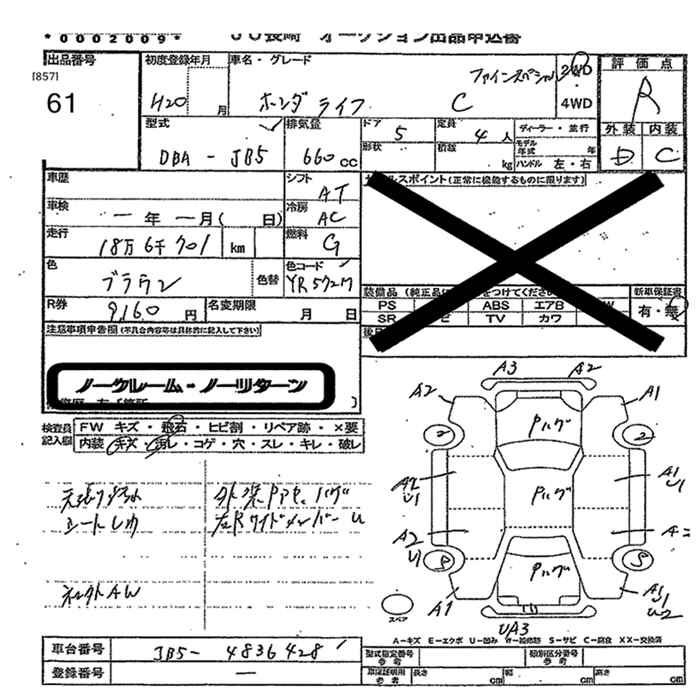 *0002009* JU長崎 オークション出品申込書
出品番号 初度登録年月 車名・グレード 評価点
[857] ファインスペシャル 2WD
61 H20 月 ホンダ ライフ C 4WD R
型式 排気量 ドア 5 定員 4人 ディーラー・並行 外装 内装
DBA - JB5 660cc 形状 積載 kg モデル年式 年 D C
ハンドル 左・右
車歴 シフト AT セールスポイント(正常に機能するものに限ります)
車検 一年 一月( 日) 冷房 AC
走行 18万6千701 km 燃料 G
色 ブラウン 色替 色コード YR572M 装備品 新車保証書
R券 9,160円 名変期限 月 日 PS ABS エアB 有・無
SR TV カワ
注意事項申告欄(不具合内容等は具体的に記入して下さい)
ノークレーム・ノーリターン
検査員記入欄 FW キズ・飛石・ヒビ割・リペア跡・×要
内装 キズ・汚レ・コゲ・穴・スレ・キレ・破レ
シート
左Rサイドメンバー U
AW
A3 A2
A2 A1
Pハゲ
2 2
A2 U1 Pハゲ A1 U1
A2 U1
Pハゲ
A1 U2
スペア UA3
A-キズ E-エクボ U-凹み W-補修跡 S-サビ C-腐食 XX-交換済
車台番号 JB5- 4836428 型式指定番号 参考 類別区分番号 参考
登録番号 一 車庫証明用 参考 長さ cm 幅 cm 高さ cm